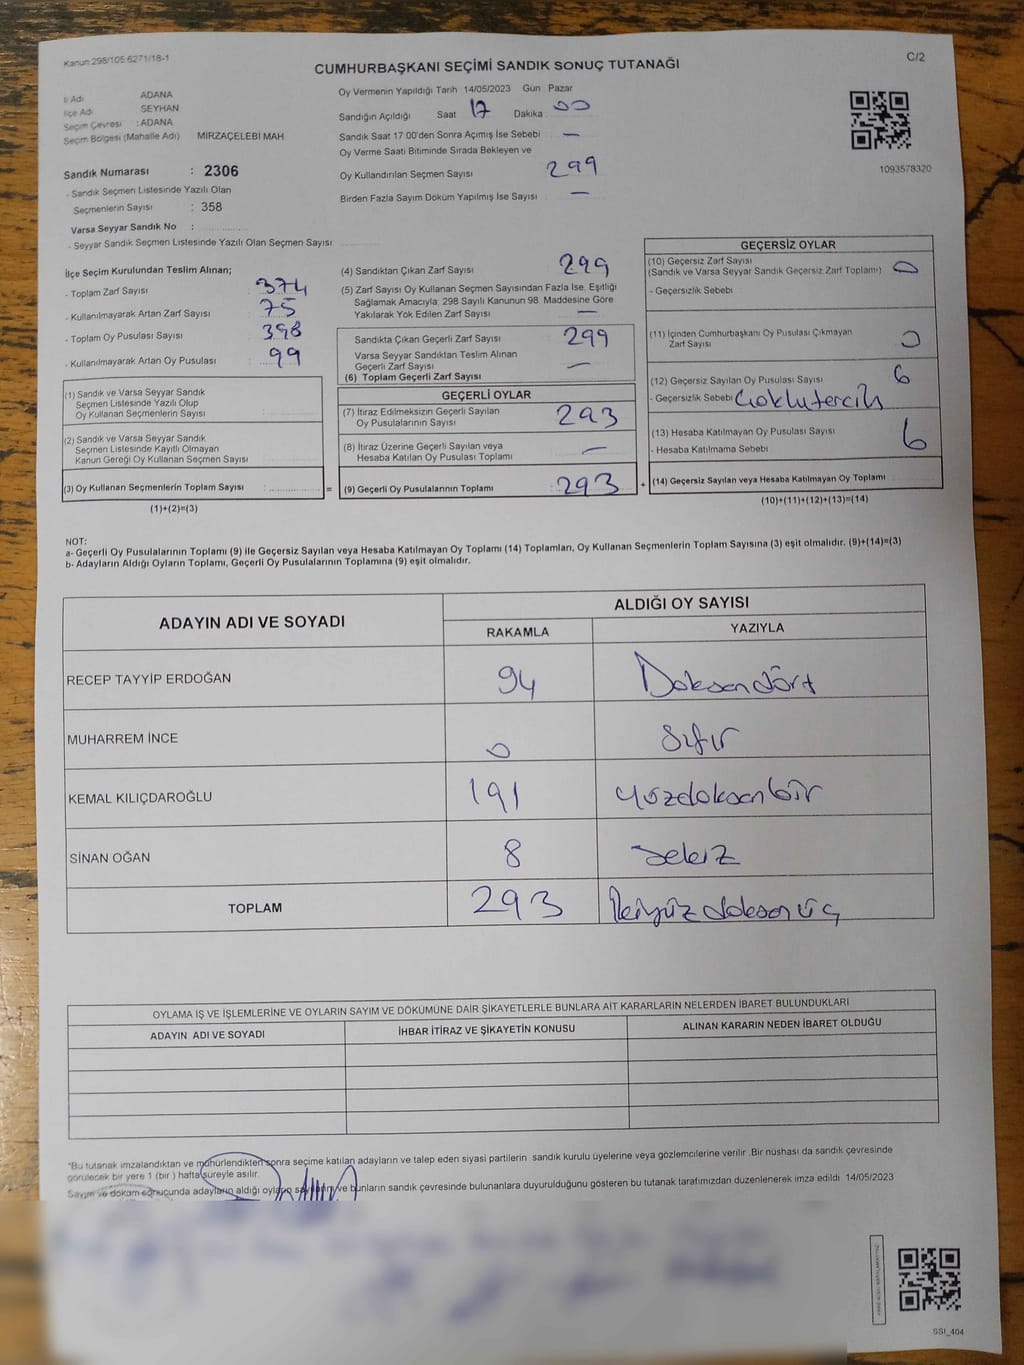 Kanun:298/105:6271/18-1
C/2
CUMHURBAŞKANI SEÇİMİ SANDIK SONUÇ TUTANAĞI
İl Adı ADANA
İlçe Adı SEYHAN
Seçim Çevresi : ADANA
Seçim Bölgesi (Mahalle Adı) MİRZAÇELEBİ MAH
Sandık Numarası : 2306
- Sandık Seçmen Listesinde Yazılı Olan
Seçmenlerin Sayısı : 358
Varsa Seyyar Sandık No :
- Seyyar Sandık Seçmen Listesinde Yazılı Olan Seçmen Sayısı:
Oy Vermenin Yapıldığı Tarih 14/05/2023 Gün Pazar
Sandığın Açıldığı Saat 17 Dakika 00
Sandık Saat 17:00'den Sonra Açımış İse Sebebi —
Oy Verme Saati Bitiminde Sırada Bekleyen ve
Oy Kullandırılan Seçmen Sayısı 299
Birden Fazla Sayım Döküm Yapılmış İse Sayısı —
1093578320
İlçe Seçim Kurulundan Teslim Alınan;
- Toplam Zarf Sayısı : 374
- Kullanılmayarak Artan Zarf Sayısı : 75
- Toplam Oy Pusulası : 398
- Kullanılmayarak Artan Oy Pusulası : 99
(1) Sandık ve Varsa Seyyar Sandık
Seçmen Listesinde Yazılı Olup
Oy Kullanan Seçmenlerin Sayısı
(2) Sandık ve Varsa Seyyar Sandık
Seçmen Listesinde Kayıtlı Olmayan
Kanun Gereği Oy Kullanan Seçmen Sayısı
(3) Oy Kullanan Seçmenlerin Toplam Sayısı :
(1)+(2)=(3)
(4) Sandıktan Çıkan Zarf Sayısı 299
(5) Zarf Sayısı Oy Kullanan Seçmen Sayısından Fazla İse, Eşitliği
Sağlamak Amacıyla, 298 Sayılı Kanunun 98. Maddesine Göre
Yakılarak Yok Edilen Zarf Sayısı —
Sandıkta Çıkan Geçerli Zarf Sayısı 299
Varsa Seyyar Sandıktan Teslim Alınan
Geçerli Zarf Sayısı —
(6) Toplam Geçerli Zarf Sayısı
GEÇERLİ OYLAR
(7) İtiraz Edilmeksizin Geçerli Sayılan
Oy Pusulalarının Sayısı 293
(8) İtiraz Üzerine Geçerli Sayılan veya
Hesaba Katılan Oy Pusulası Toplamı —
= (9) Geçerli Oy Pusulalarının Toplamı 293
GEÇERSİZ OYLAR
(10) Geçersiz Zarf Sayısı
(Sandık ve Varsa Seyyar Sandık Geçersiz Zarf Toplamı) 0
- Geçersizlik Sebebi
(11) İçinden Cumhurbaşkanı Oy Pusulası Çıkmayan
Zarf Sayısı 0
(12) Geçersiz Sayılan Oy Pusulası Sayısı 6
- Geçersizlik Sebebi Çoklu tercih
(13) Hesaba Katılmayan Oy Pusulası Sayısı 6
- Hesaba Katılmama Sebebi
+ (14) Geçersiz Sayılan veya Hesaba Katılmayan Oy Toplamı
(10)+(11)+(12)+(13)=(14)
NOT:
a- Geçerli Oy Pusulalarının Toplamı (9) ile Geçersiz Sayılan veya Hesaba Katılmayan Oy Toplamı (14) Toplamları, Oy Kullanan Seçmenlerin Toplam Sayısına (3) eşit olmalıdır. (9)+(14)=(3)
b- Adayların Aldığı Oyların Toplamı, Geçerli Oy Pusulalarının Toplamına (9) eşit olmalıdır.
ADAYIN ADI VE SOYADI ALDIĞI OY SAYISI
RAKAMLA YAZIYLA
RECEP TAYYİP ERDOĞAN 94 Doksandört
MUHARREM İNCE 0 Sıfır
KEMAL KILIÇDAROĞLU 191 yüzdoksanbir
SİNAN OĞAN 8 sekiz
TOPLAM 293 İkiyüzdoksanüç
OYLAMA İŞ VE İŞLEMLERİNE VE OYLARIN SAYIM VE DÖKÜMÜNE DAİR ŞİKAYETLERLE BUNLARA AİT KARARLARIN NELERDEN İBARET BULUNDUKLARI
ADAYIN ADI VE SOYADI İHBAR İTİRAZ VE ŞİKAYETİN KONUSU ALINAN KARARIN NEDEN İBARET OLDUĞU
*Bu tutanak imzalandıktan ve mühürlendikten sonra seçime katılan adayların ve talep eden siyasi partilerin sandık kurulu üyelerine veya gözlemcilerine verilir .Bir nüshası da sandık çevresinde
görülecek bir yere 1 (bir ) hafta süreyle asılır.
Sayım ve döküm sonucunda adayların aldığı oyların sayılarını ve bunların sandık çevresinde bulunanlara duyurulduğunu gösteren bu tutanak tarafımızdan düzenlenerek imza edildi 14/05/2023
SSI_404